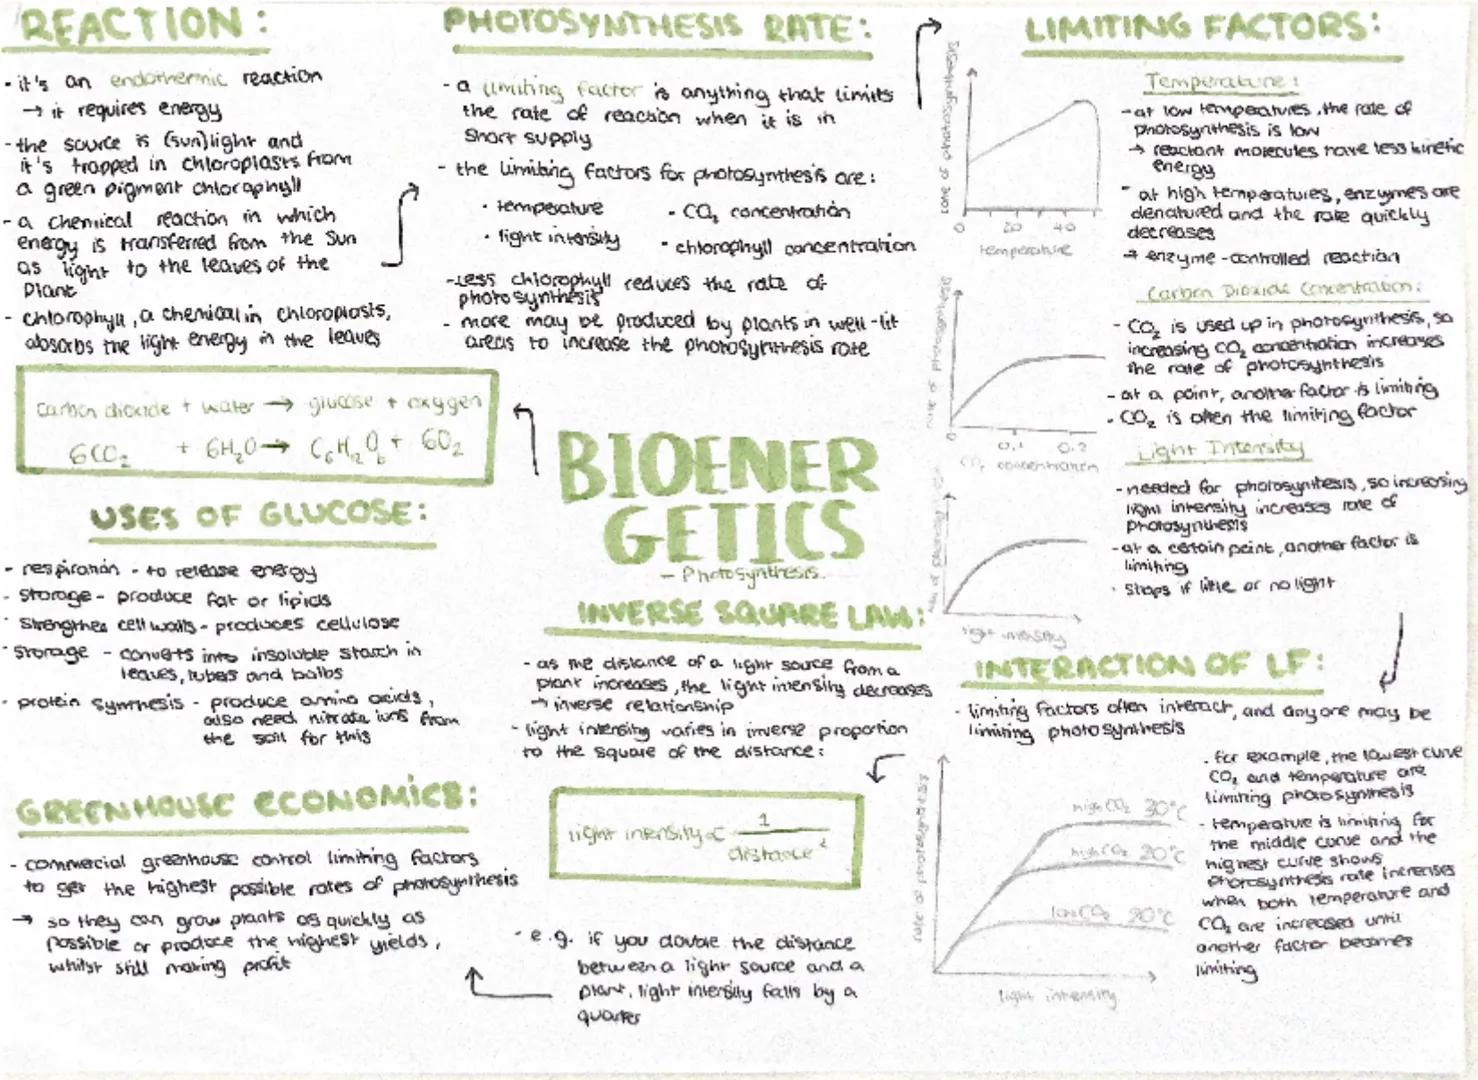 REACTION:
- it's an endothermic reaction
→ it requires energy
- the source is (sun)light and
it's trapped in chloroplasts from
a green pigment chlorophyll
- a chemical reaction in which
energy is transferred from the Sun
as light to the leaves of the
Plant
- chlorophyll, a chemical in chloroplasts,
absorbs the light energy in the leaves
carbon dioxide + water → glucose + oxygen
6CO₂ + 6H₂O → C₆H₁₂O₆ + 6O₂
USES OF GLUCOSE:
- respiration - to release energy
- Storage - produce fat or lipids
- Strengthen cell walls - produces cellulose
- Storage - converts into insoluble starch in
leaves, tubers and bulbs
- protein synthesis - produce amino acids,
also need nitrate ions from
the soil for this
GREENHOUSE ECONOMICS:
- commercial greenhouse control limiting factors
to get the highest possible rates of photosynthesis
→ so they can grow plants as quickly as
possible or produce the highest yields,
whilst still making profit
PHOTOSYNTHESIS RATE:
- a limiting factor is anything that limits
the rate of reaction when it is in
short supply
- the limiting factors for photosynthesis are:
• temperature • CO₂ concentration
• light intensity • chlorophyll concentration
- Less chlorophyll reduces the rate of
photosynthesis
- more may be produced by plants in well-lit
areas to increase the photosynthesis rate
BIOENER
GETICS
- Photosynthesis -
INVERSE SQUARE LAW:
- as the distance of a light source from a
plant increases, the light intensity decreases
→ inverse relationship
- light intensity varies in inverse proportion
to the square of the distance:
light intensity ∝ 1
distance²
- e.g. if you double the distance
between a light source and a
plant, light intensity falls by a
quarter
LIMITING FACTORS:
rate of photosynthesis
0 20 40
temperature
Temperature:
- at low temperatures, the rate of
photosynthesis is low
→ reactant molecules have less kinetic
energy
- at high temperatures, enzymes are
denatured and the rate quickly
decreases
→ enzyme-controlled reaction
rate of photosynthesis
0 0.1 0.2
CO₂ concentration
Carbon Dioxide Concentration:
- CO₂ is used up in photosynthesis, so
increasing CO₂ concentration increases
the rate of photosynthesis
- at a point, another factor is limiting
- CO₂ is often the limiting factor
rate of
light intensity
Light Intensity
- needed for photosynthesis, so increasing
light intensity increases rate of
photosynthesis
- at a certain point, another factor is
limiting
• Stops if little or no light
INTERACTION OF LF:
- limiting factors often interact, and any one may be
limiting photosynthesis
rate of photosynthesis
high CO₂ 30°C
high CO₂ 20°C
low CO₂ 20°C
light intensity
- for example, the lowest curve
CO₂ and temperature are
limiting photosynthesis
- temperature is limiting for
the middle curve and the
highest curve shows
photosynthesis rate increases
when both temperature and
CO₂ are increased until
another factor becomes
limiting